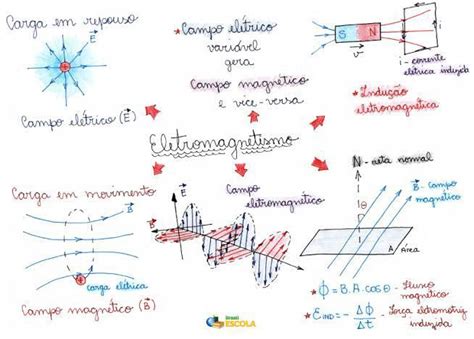 Carga em repouso
E
Campo elétrico (E)
* Campo elétrico
variável
gera
Campo magnético
e vice-versa
S N
v
i
i - corrente
elétrica induzida
* Indução
eletromagnética
Eletromagnetismo
Carga em movimento
B
B
carga elétrica
Campo magnético (B)
Campo
eletromagnético
E
B
N - reta normal
B - campo
magnético
θ
A/área
* Φ = B.A.cosθ - Fluxo
magnético
* EIND = - ΔΦ/Δt - Força eletromotriz
induzida
Brasil
ESCOLA